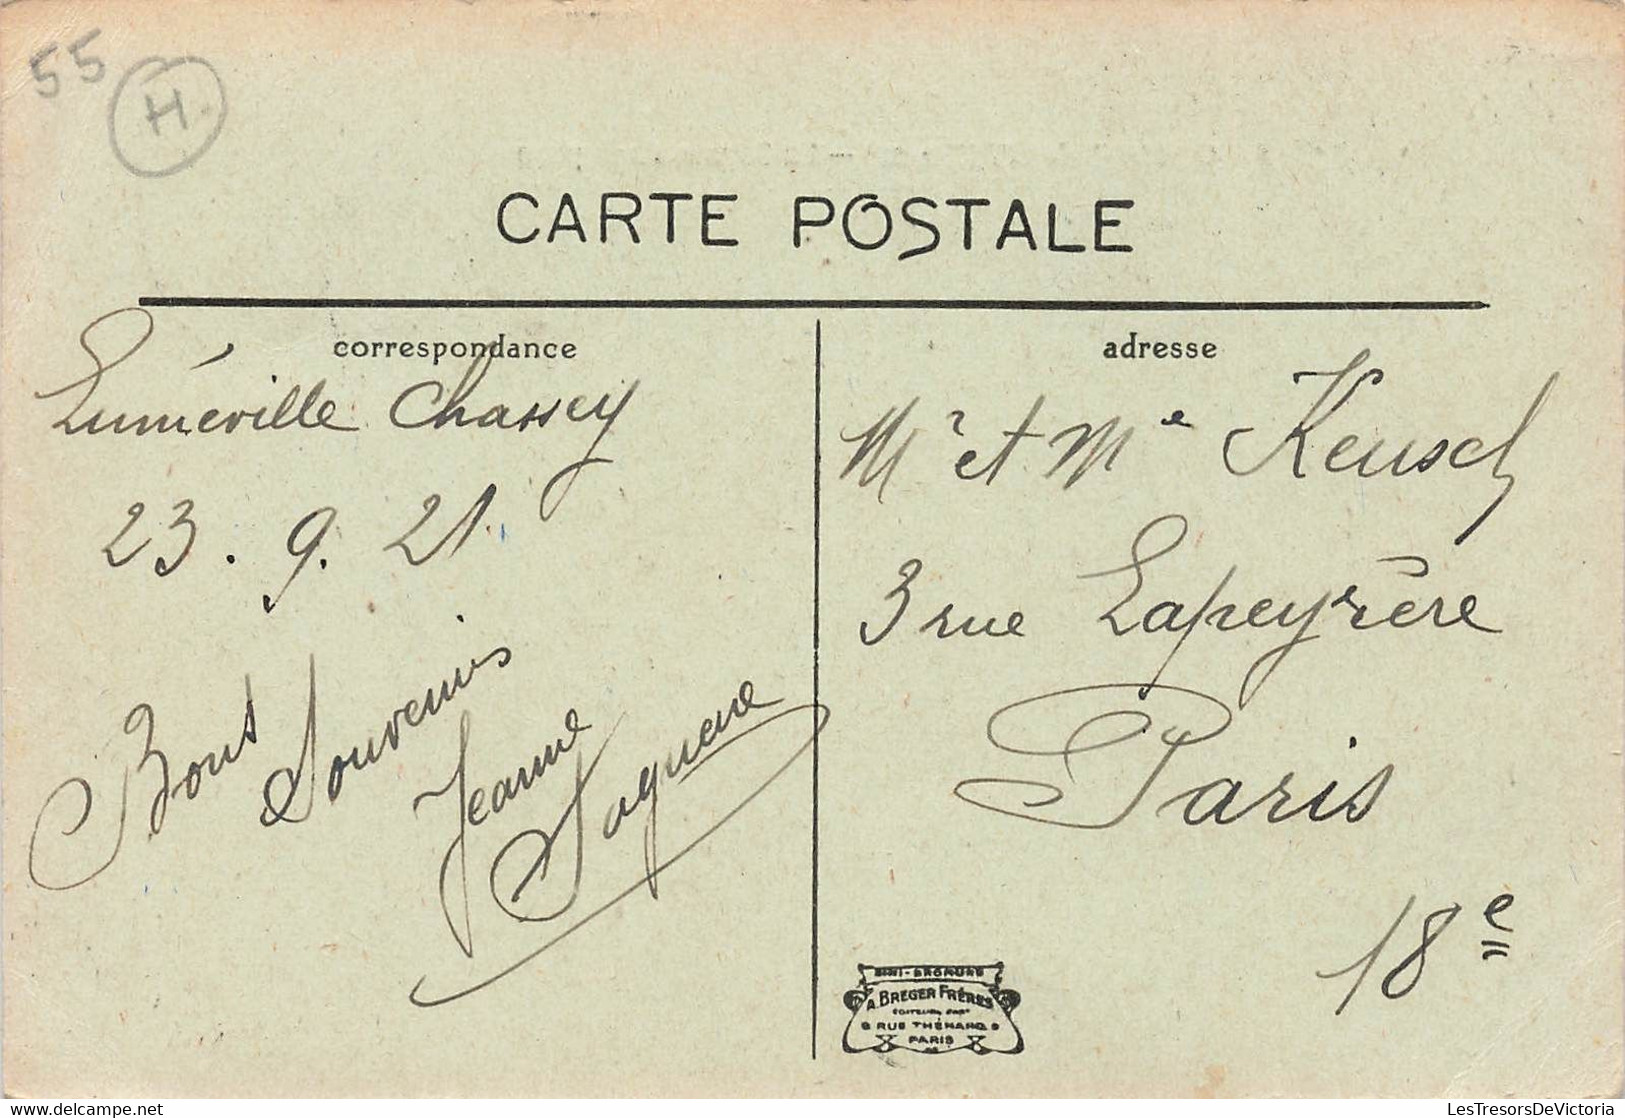 55
H
CARTE POSTALE
correspondance
Luméville Chassey
23. 9. 21.
Bons Souvenirs
Jeanne
adresse
Mr et Me Keusch
3 rue Lapeyrère
Paris
18e
SIMI-BROMURE
A. BREGER FRÈRES
9 RUE THÉNARD 9
PARIS
delcampe.net
LesTresorsDeVictoria